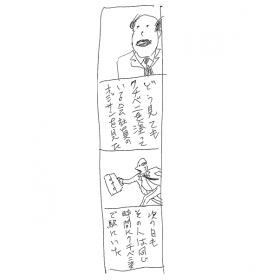 どう見ても
クチベニを塗って
いる会社員の
オジサンを見た
次の日も
その人は同じ
時間にクチベニ塗
で駅にいた